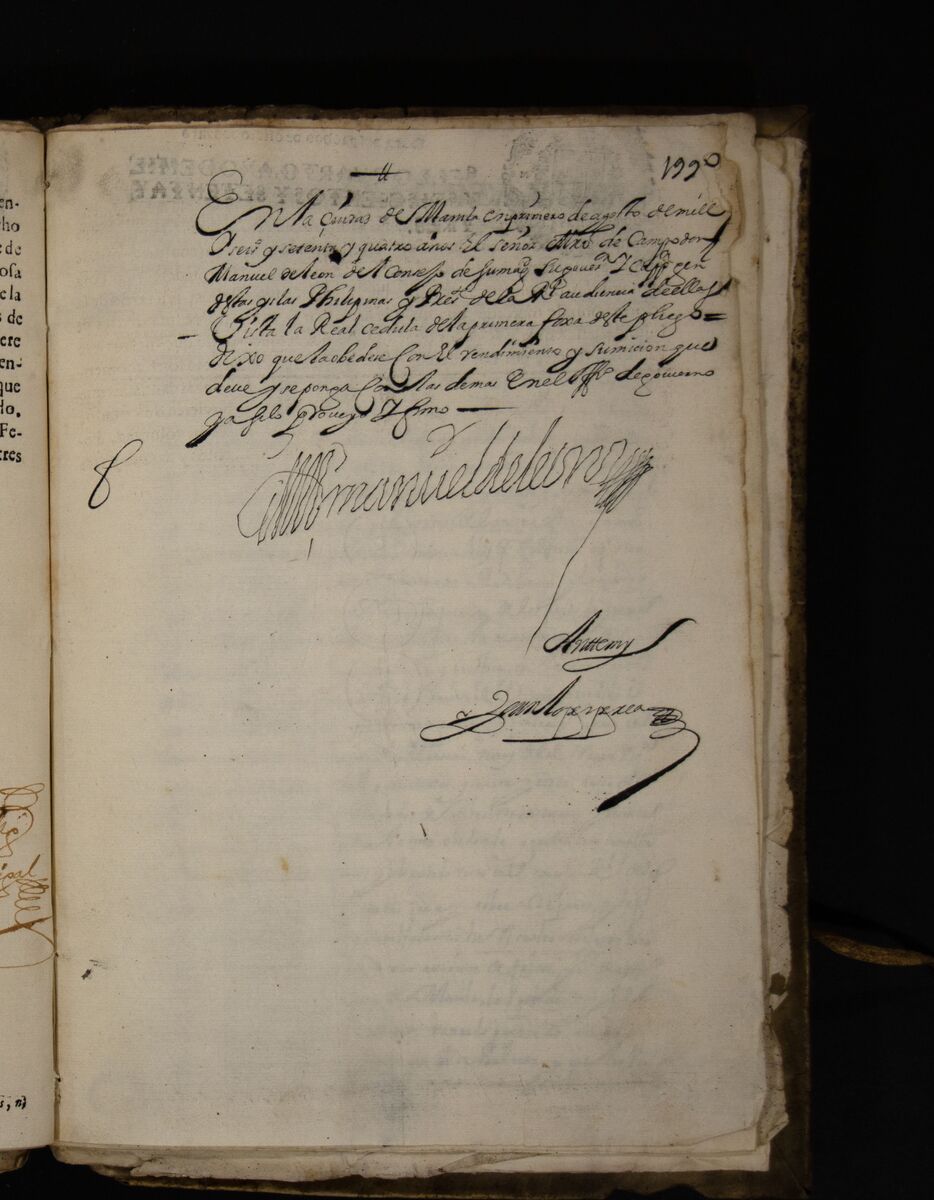 en-
cho
e de
osa
e la
s de
ere
en-
que
do.
Fe-
tres
s, n)
1990
En la ciudad de Manila en primero de agosto de mill
Y seis y setenta y quatro años El señor Mro de Campo don
Manuel de leon del Consejo de su mag Su gover Y Cap gen
destas yslas Philipinas y Pres de la Rl audiencia de ellas
Vista la Real cedula de la primera foxa deste pliego =
Dixo que la obedese Con El rendimiento y sumicion que
deve y se ponga Con las demas En el offo de govierno
ya si lo proveyo Y firmo
Manuel de leon
Antte my
Juan lopez perea